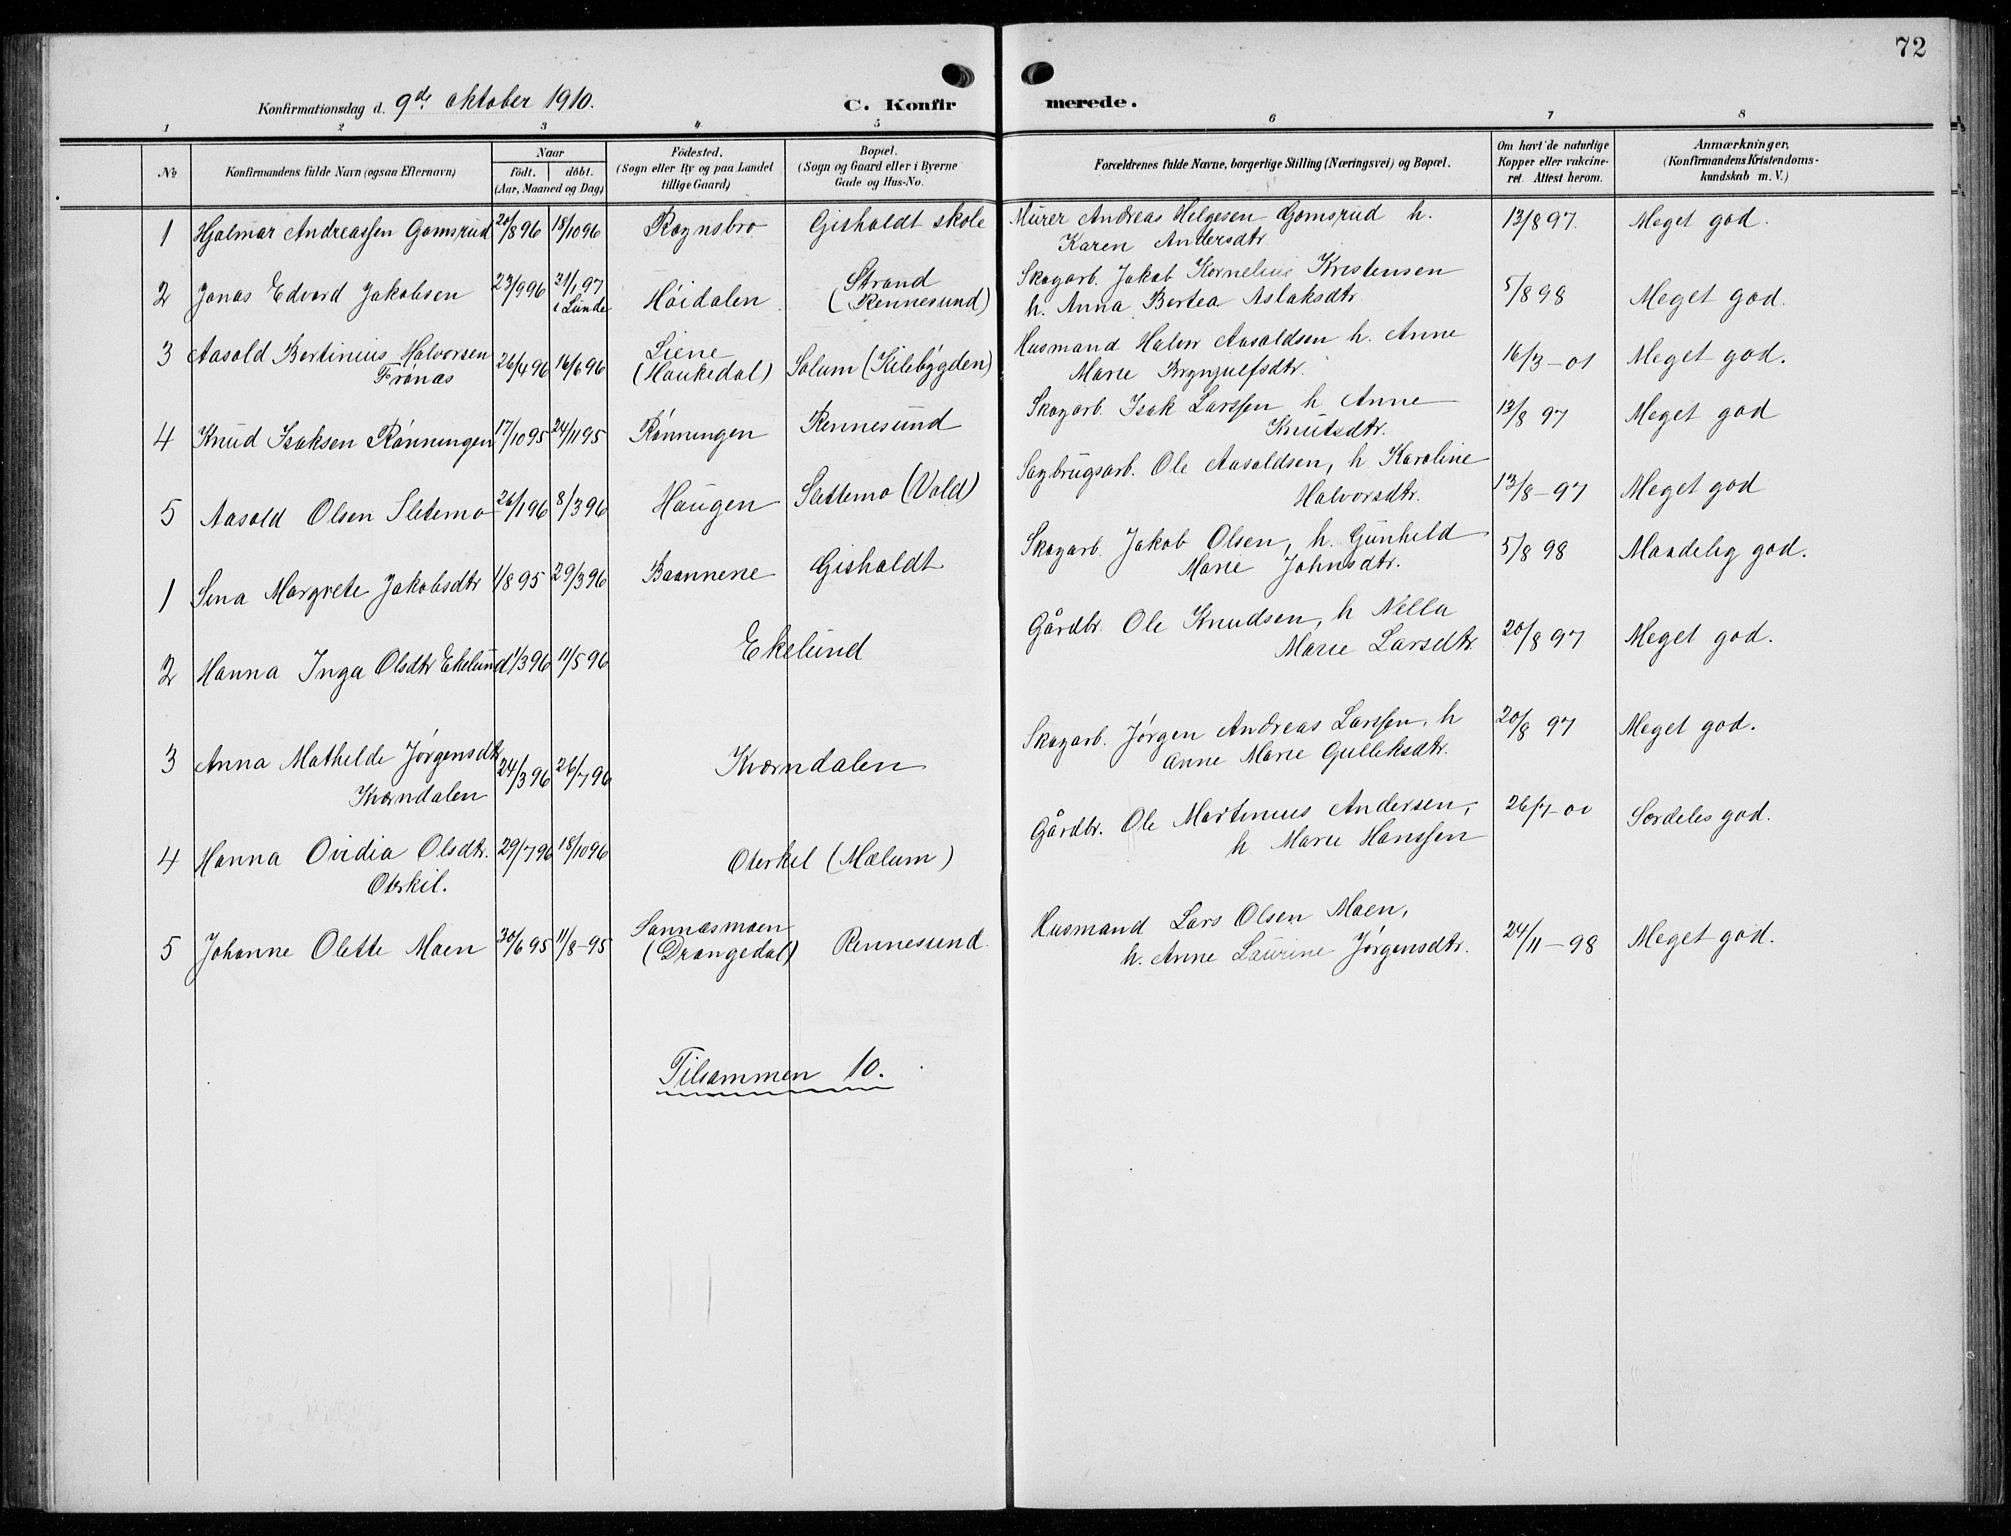 72
Konfirmationsdag d. 9de oktober 1910.
C. Konfirmerede.
1 2 3 4 5 6 7 8
No
Konfirmandens fulde Navn (ogsaa Efternavn)
Naar
født. døbt.
(Aar, Maaned og Dag)
Fødested.
(Sogn eller By og paa Landet
tillige Gaard)
Bopæl.
(Sogn og Gaard eller i Byerne
Gade og Hus-No.
Forældrenes fulde Navne, borgerlige Stilling (Næringsvei) og Bopæl.
Om havt de naturlige
Kopper eller vakcine-
ret. Attest herom.
Anmærkninger,
(Konfirmandens Kristendoms-
kundskab m. V.)
1 Hjalmar Andreassen Gomsrud 20/8 96 18/10 96 Rognsbro Gisholdt skole Murer Andreas Helgesen Gomsrud h. 13/8 97. Meget god.
Karen Andersdtr.
2 Jonas Edvard Jakobsen 23/9 96 31/1 97 Høidalen Strand Skogarb. Jakob Kornelius Kristensen 5/8 98 Meget god.
i Lunde (Rennesund) h. Anna Bertea Aslaksdtr.
3 Aasold Bertinius Halvorsen 26/4 96 16/6 96 Liene Solum (Kilebygden) Husmand Halvor Aasoldsen h. Anne 16/3 - 01 Meget god.
Frønæs (Haukedal) Marie Brynjulfsdtr.
4 Knud Isaksen Rønningen 17/10 95 24/11 95 Rønningen Rennesund Skogarb. Isak Larssen h Anne 13/8 97 Meget god
Knutsdtr.
5 Aasold Olsen Sletemo 26/1 96 8/3 96 Haugen Slettemo (Vold) Sagbrugsarb. Ole Aasoldsen, h Karoline 13/8 - 97 Meget god
Halvorsdtr.
1 Sina Margrete Jakobsdtr 1/8 95 29/3 96 Baannene Gisholdt Skogarb. Jakob Olsen, h. Gunhild 5/8 98 Maadelig god.
Marie Johnsdtr.
2 Hanna Inga Olsdtr Ekelund 1/3 96 11/5 96 Ekelund Gårdbr. Ole Knudsen, h Nella 20/8 97 Meget god.
Marie Larsdtr.
3 Anna Mathilde Jørgensdtr 24/3 96 26/7 96 Kværndalen Skogarb. Jørgen Andreas Larssen, h 20/8 97 Meget god.
Kværndalen Anne Marie Gulliksdtr.
4 Hanna Ovidia Olsdtr. 29/7 96 18/10 96 Oterkil (Mælum) Gårdbr. Ole Martinius Andersen, 26/7 - 00 Særdeles god.
Oterkil. h Marie Hanssen
5 Johanne Olette Moen 30/6 95 11/8 - 95 Sannæsmoen Rennesund. Husmand Lars Olsen Moen, 24/11 - 98 Meget god.
(Drangedal) h. Anne Laurine Jørgensdtr.
Tilsammen 10.